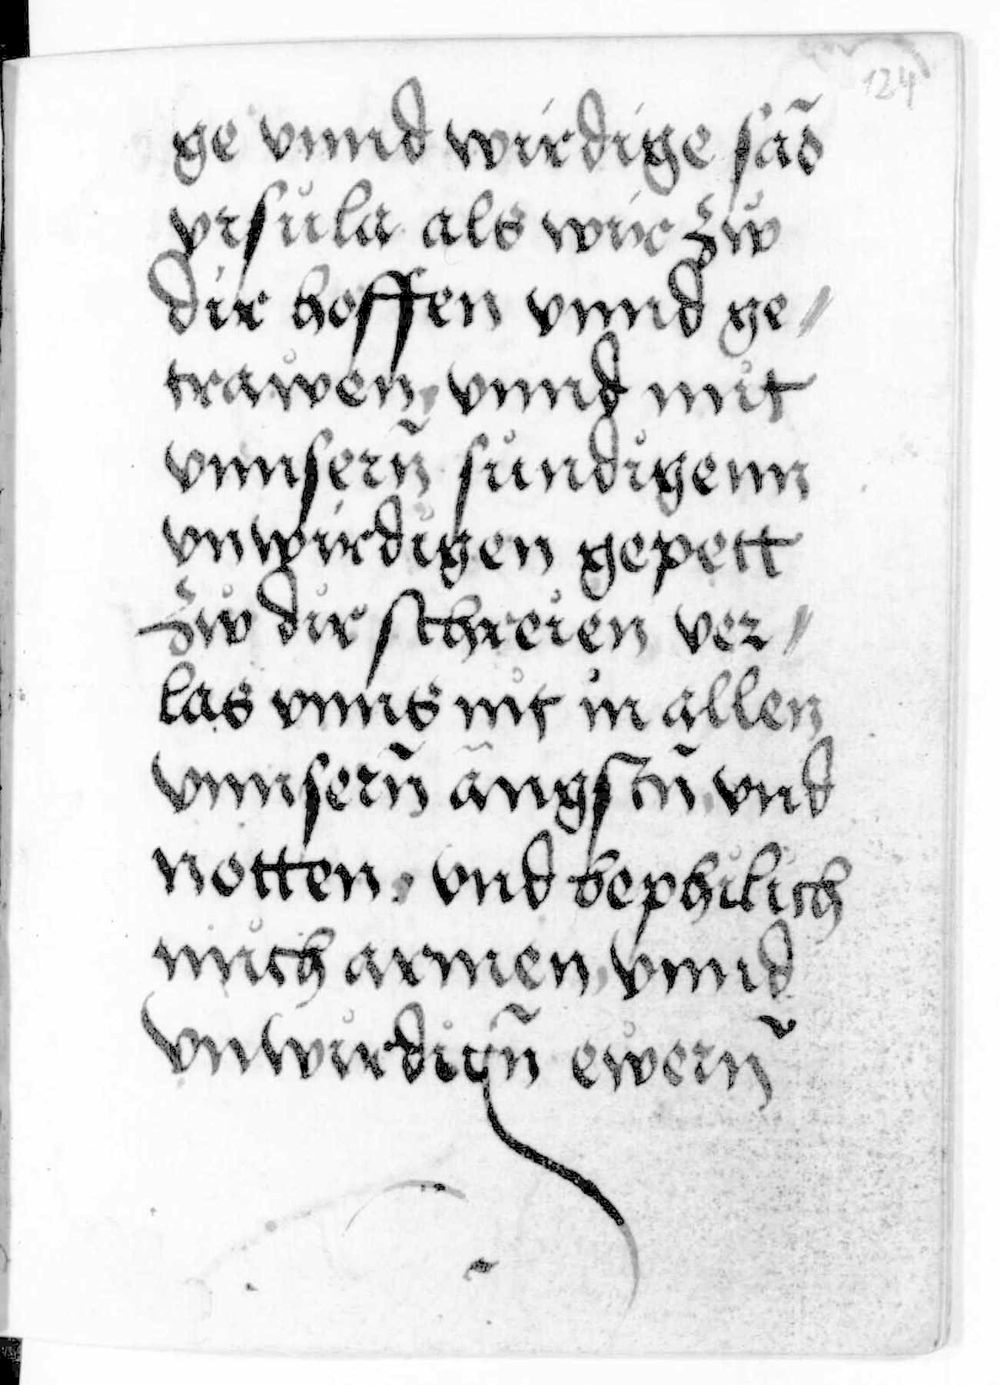 124
ge vnnd wirdige sãs
vrsula als wir zw
dir hoffen vnnd ge⸗
trawen, vnnd mit
vnnsern̄ sündigenn
vnwirdigen gepett
zw dir schreien ver⸗
las vnns nit in allen
vnnsern̄ ängstn̄ vnd
notten, vnd bephilich
mich armen, vnnd
vnwirdign̄ ewern̄